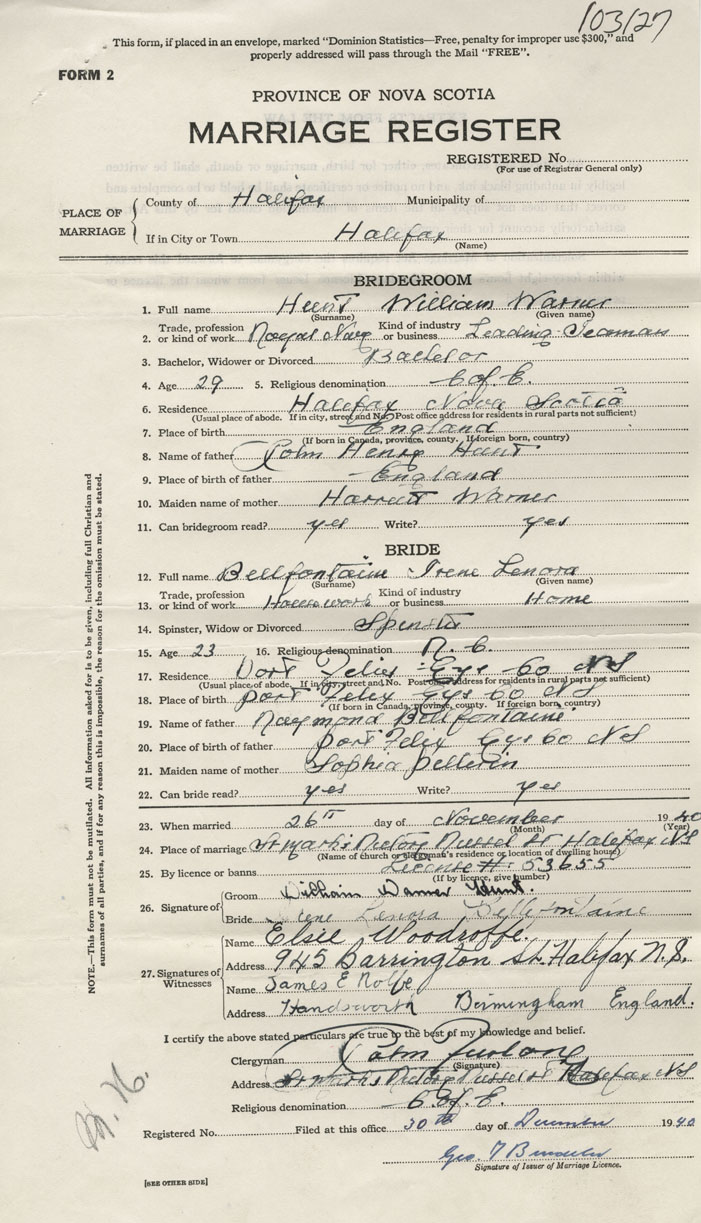 103/27
This form, if placed in an envelope, marked "Dominion Statistics—Free, penalty for improper use $300," and
properly addressed will pass through the Mail "FREE".
FORM 2
PROVINCE OF NOVA SCOTIA
MARRIAGE REGISTER
REGISTERED No.
(For use of Registrar General only)
PLACE OF MARRIAGE
County of Halifax Municipality of
If in City or Town Halifax
(Name)
BRIDEGROOM
1. Full name Hunt William Warner
(Surname) (Given name)
2. Trade, profession or kind of work Royal Navy Kind of industry or business Leading Seaman
3. Bachelor, Widower or Divorced Bachelor
4. Age 29 5. Religious denomination C of E.
6. Residence Halifax Nova Scotia
(Usual place of abode. If in city, street and No. Post office address for residents in rural parts not sufficient)
7. Place of birth England
(If born in Canada, province, county. If foreign born, country)
8. Name of father John Henry Hunt
9. Place of birth of father England
10. Maiden name of mother Harriett Warner
11. Can bridegroom read? yes Write? yes
BRIDE
12. Full name Bellfontaine Irene Lenora
(Surname) (Given name)
13. Trade, profession or kind of work Housework Kind of industry or business Home
14. Spinster, Widow or Divorced Spinster
15. Age 23 16. Religious denomination R. C.
17. Residence Port Felix Guys Co NS
(Usual place of abode. If in city, street and No. Post office address for residents in rural parts not sufficient)
18. Place of birth Port Felix Guys Co NS
(If born in Canada, province, county. If foreign born, country)
19. Name of father Raymond Bellfontaine
20. Place of birth of father Port Felix Guys Co NS
21. Maiden name of mother Sophia Pellerin
22. Can bride read? yes Write? yes
23. When married 26th day of November 1940
(Month) (Year)
24. Place of marriage St Marks Rectory Russel St Halifax NS
(Name of church or clergyman's residence or location of dwelling house)
25. By licence or banns License #: 53655
(If by licence, give number)
26. Signature of
Groom William Warner Hunt.
Bride Irene Lenora Bellefontaine
27. Signatures of Witnesses
Name Elsie Woodroffe.
Address 945 Barrington St. Halifax N.S.
Name James E Rolfe
Address Handsworth Birmingham England.
I certify the above stated particulars are true to the best of my knowledge and belief.
Clergyman John Furlong
(Signature)
Address St Marks Rectory Russel St Halifax NS
Religious denomination C of E.
Registered No. Filed at this office 30th day of December 1940
Geo. T
Signature of Issuer of Marriage Licence.
[SEE OTHER SIDE]
NOTE.—This form must not be mutilated. All information asked for is to be given, including full Christian and
surnames of all parties, and if for any reason this is impossible, the reason for the omission must be stated.